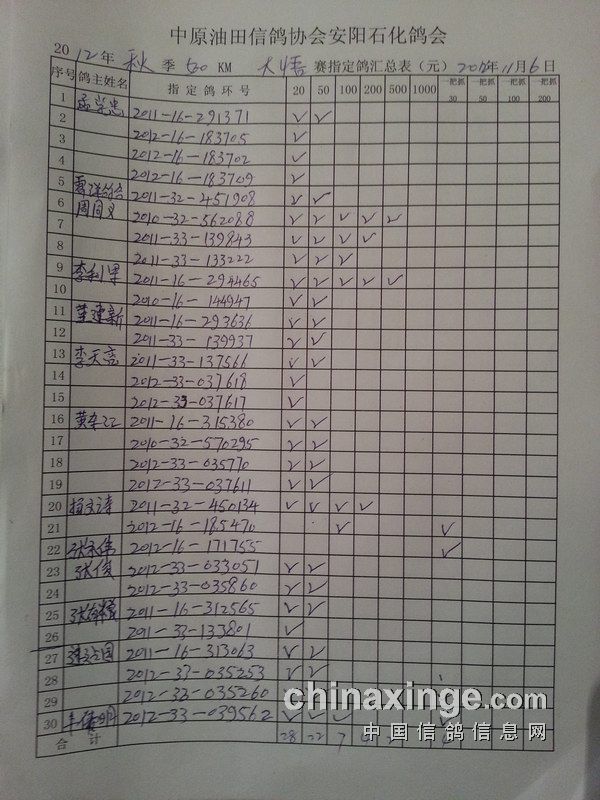 中原油田信鸽协会安阳石化鸽会
2012年 秋 季 520 KM 大悟 赛指定鸽汇总表（元） 2012年11月6日
序号 鸽主姓名 指定鸽环号 20 50 100 200 500 1000 一把抓30 一把抓50 一把抓100 一把抓200
1 孟学忠
2 2011-16-291371 √ √
3 2012-16-183705 √
4 2012-16-183702 √
5 2012-16-183709 √
6 2011-32-451908 √ √
7 2010-32-562088 √ √ √ √ √
8 2011-33-139843 √ √ √ √
2011-33-133222 √ √ √
9 李利军 2011-16-294465 √ √ √ √ √
10 2010-16-144947 √ √
11 董建新 2011-16-293636 √ √
12 2011-33-139937 √ √
13 李天亮 2011-33-137566 √ √
14 2012-33-037618 √
15 2012-33-037617 √
16 2011-16-315380 √ √
17 2010-32-570295 √ √
18 2012-33-035770 √ √
19 2012-33-037611 √ √
20 2011-32-450134 √ √ √ √
21 2012-16-185470 √ √
22 2012-16-171755 √
23 张俊 2012-33-033051 √ √
24 2012-33-035860 √ √
25 2011-16-312565 √ √
26 2011-33-133801 √
27 2011-16-313063 √ √
28 2012-33-035253 √ √
29 2012-33-035260
30 2012-33-039562 √ √ √
合 计 28 22 7
chinaxinge.com
中国信鸽信息网